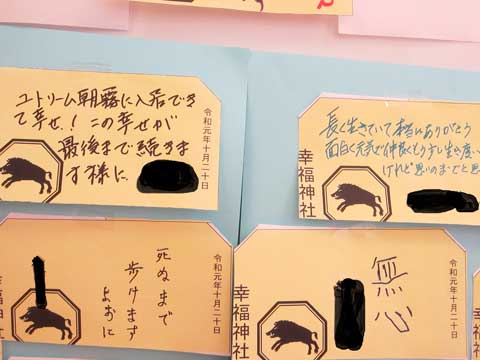 ユトリーム朝霧に入居でき
て幸せ.! この幸せが
最後まで続きま
す様に
令和元年十月二十日
長く生きていて本当にありがとう
面白く元気で仲良くもう少し
けれど思いのまでと思
幸福神社
令和元年十月二十日
死ぬまで
歩けます
よおに
令和元年十月二十日
無心
幸福神社